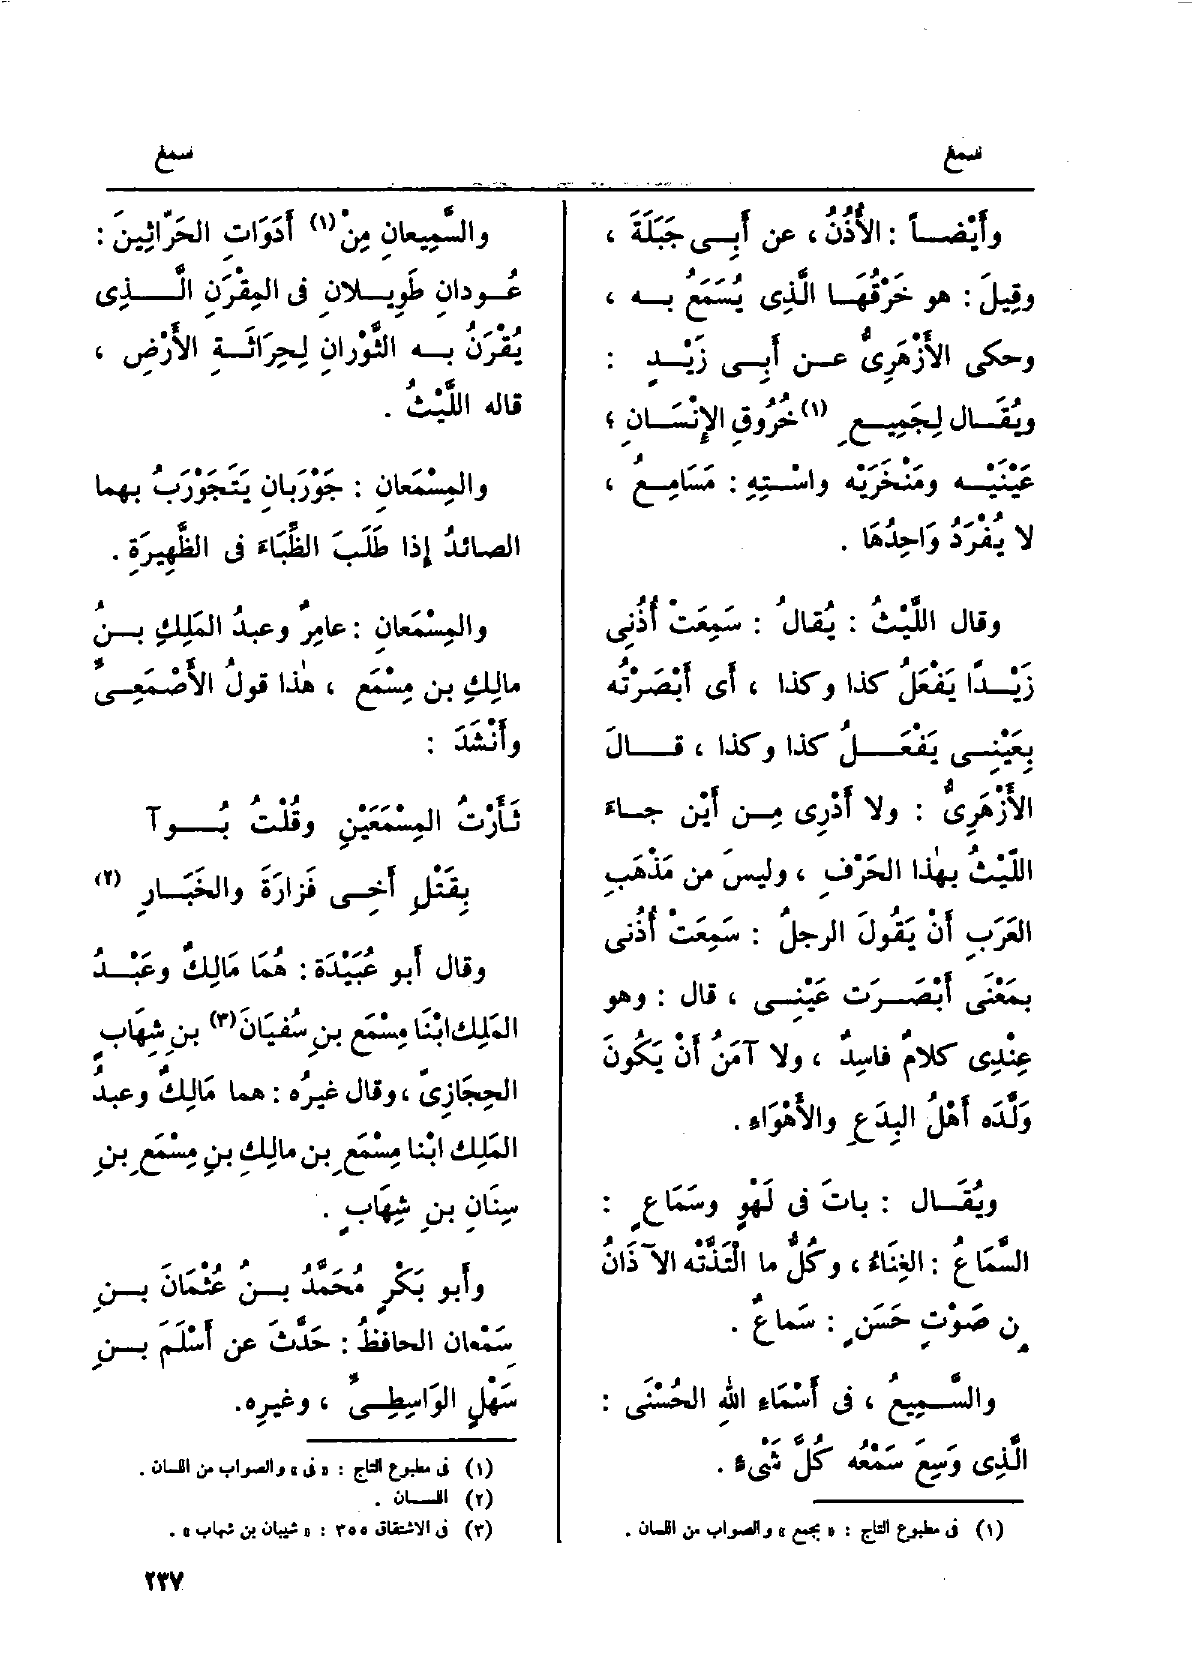 سمع
سمع
وأَيْضاً : الأُذُنُ ، عن أَبِى جَبَلَةَ ،
وقِيلَ : هو خَرْقُهَا الَّذِى يُسْمَعُ به ،
وحكى الأَزْهَرِىُّ عن أَبِى زَيْدٍ :
ويُقَال لِجَمِيعِ (١) خُرُوقِ الإِنْسَانِ ؛
عَيْنَيْه ومَنْخَرَيْه واسْتِهِ : مَسَامِعُ ،
لا يُفْرَدُ وَاحِدُهَا .
وقال اللَّيْثُ : يُقالُ : سَمِعَتْ أُذُنِى
زَيْدًا يَفْعَلُ كذا وكذا ، أَى أَبْصَرْتُه
بِعَيْنِى يَفْعَلُ كذا وكذا ، قالَ
الأَزْهَرِىُّ : ولا أَدْرِى مِن أَيْن جاءَ
اللَّيْثُ بهٰذا الحَرْفِ ، وليسَ من مَذْهَبِ
العَرَبِ أَنْ يَقُولَ الرجلُ : سَمِعَتْ أُذُنى
بمَعْنَى أَبْصَرَت عَيْنِى ، قال : وهو
عِنْدِى كلامٌ فاسِدٌ ، ولا آمَنُ أَنْ يَكُونَ
وَلَّدَه أَهْلُ البِدَعِ والأَهْوَاءِ .
ويُقَال : باتَ فى لَهْوٍ وسَمَاعٍ :
السَّمَاعُ : الغِنَاءُ ، وكُلُّ ما الْتَذَّتْه الآذَانُ
مِن صَوْتٍ حَسَنٍ : سَماعٌ .
والسَّمِيعُ ، فى أَسْمَاءِ اللهِ الحُسْنَى :
الَّذِى وَسِعَ سَمْعُه كُلَّ شَىْءٍ .
(١) فى مطبوع التاج : « بجمع » والصواب من اللسان .
والسَّمِيعانِ مِنْ (١) أَدَوَاتِ الحَرّاثِينَ :
عُودانِ طَوِيلانِ فى المِقْرَنِ الَّذِى
يُقْرَنُ به الثَّوْرانِ لِحِرَاثَةِ الأَرْضِ ،
قاله اللَّيْثُ .
والمِسْمَعانِ : جَوْرَبانِ يَتَجَوْرَبُ بهما
الصائدُ إذا طَلَبَ الظِّبَاءَ فى الظَّهِيرَةِ .
والمِسْمَعانِ : عامِرٌ وعبدُ المَلِكِ بنُ
مالِكِ بن مِسْمَعٍ ، هٰذا قولُ الأَصْمَعِىّ
وأَنْشَدَ :
ثَأَرْتُ المِسْمَعَيْنِ وقُلْتُ بُوآ
بِقَتْلِ أَخِى فَزارَةَ والخَبَارِ (٢)
وقال أبو عُبَيْدَة : هُمَا مَالِكٌ وعَبْدُ
المَلِك ابْنَا مِسْمَع بنِ سُفيَانَ (٣) بنِ شِهَابٍ
الحِجَازِىّ ، وقال غيرُه : هما مَالِكٌ وعبدُ
المَلِك ابْنا مِسْمَعِ بن مالِكِ بنِ مِسْمَعِ بنِ
سِنَانِ بنِ شِهَابٍ .
وأَبو بَكْرٍ مُحَمَّدُ بنُ عُثْمَانَ بنِ
سِمْعَان الحافظُ : حَدَّثَ عن أَسْلَمَ بنِ
سَهْلٍ الوَاسِطِىّ ، وغيرِه .
(١) فى مطبوع التاج : « فى » والصواب من اللسان .
(٢) اللسان .
(٣) فى الاشتقاق ٣٥٥ : « شيبان بن شهاب » .
٢٣٧